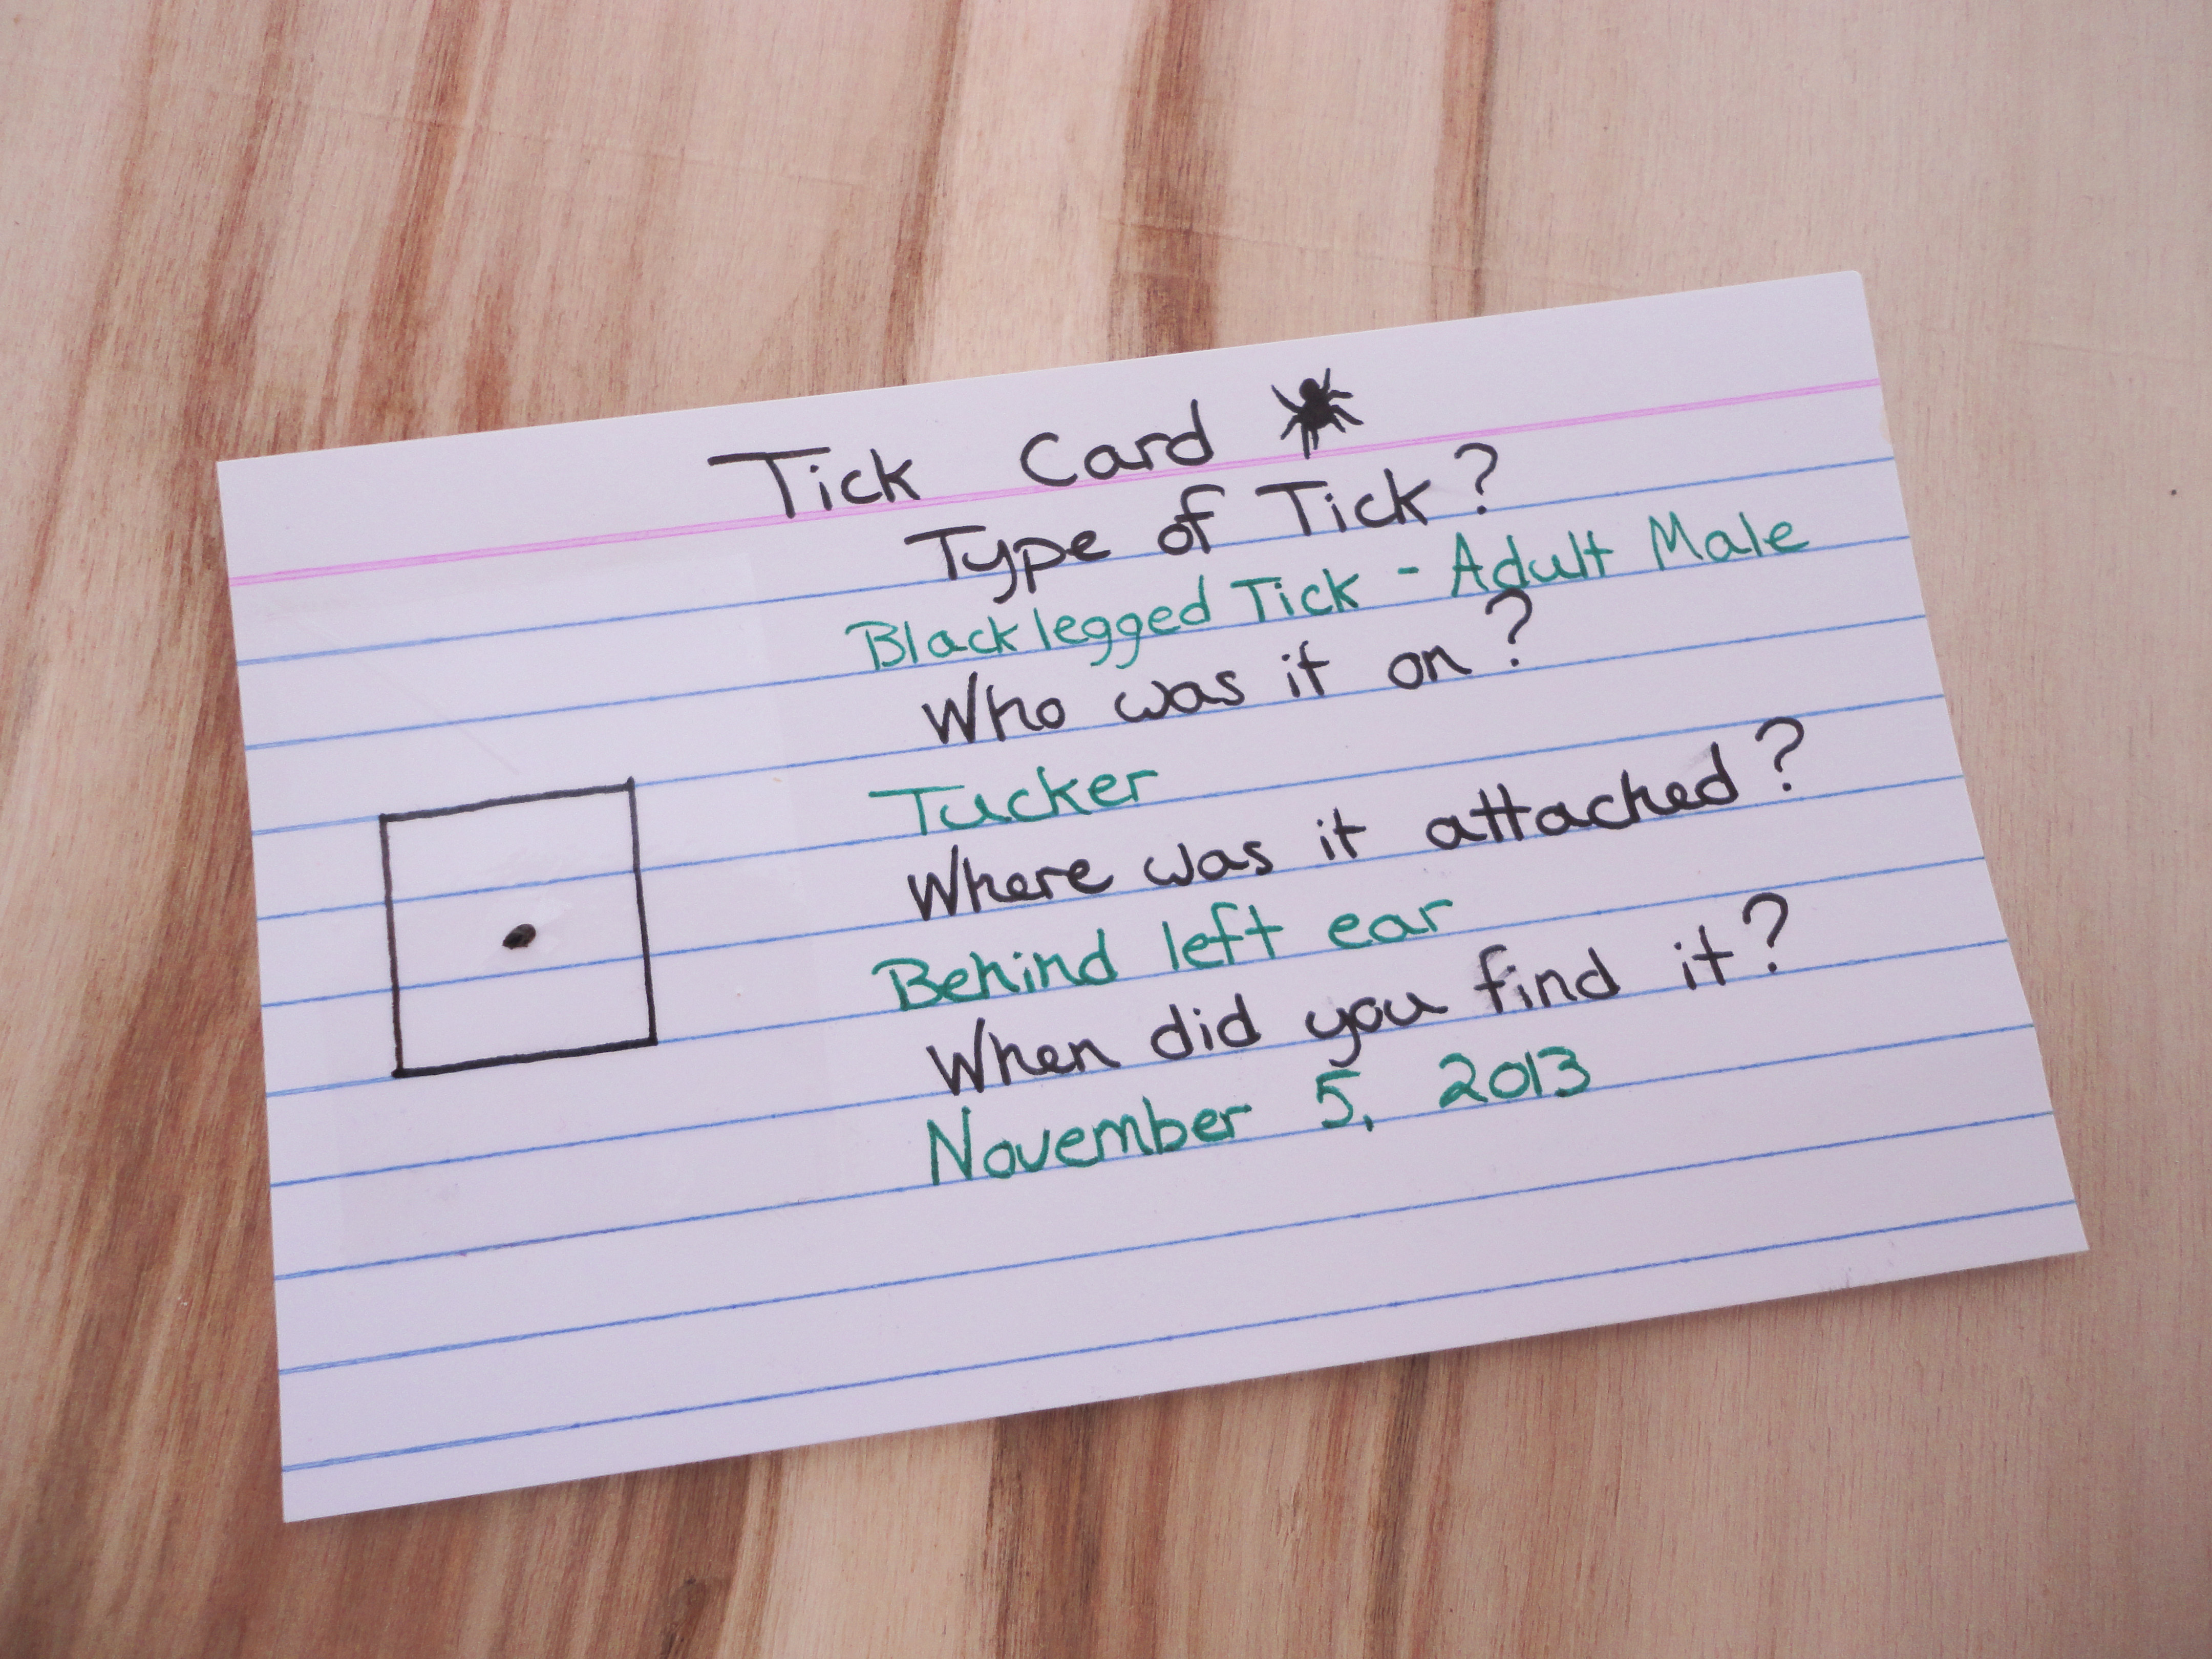 Tick Card
Type of Tick?
Blacklegged Tick - Adult Male
Who was it on?
Tucker
Where was it attached?
Behind left ear
When did you find it?
November 5, 2013